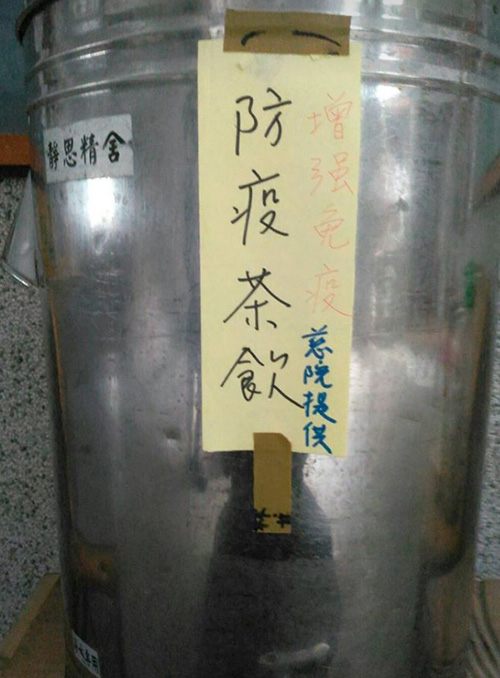 靜思精舍
增强免疫
防疫茶飲
慈院提供